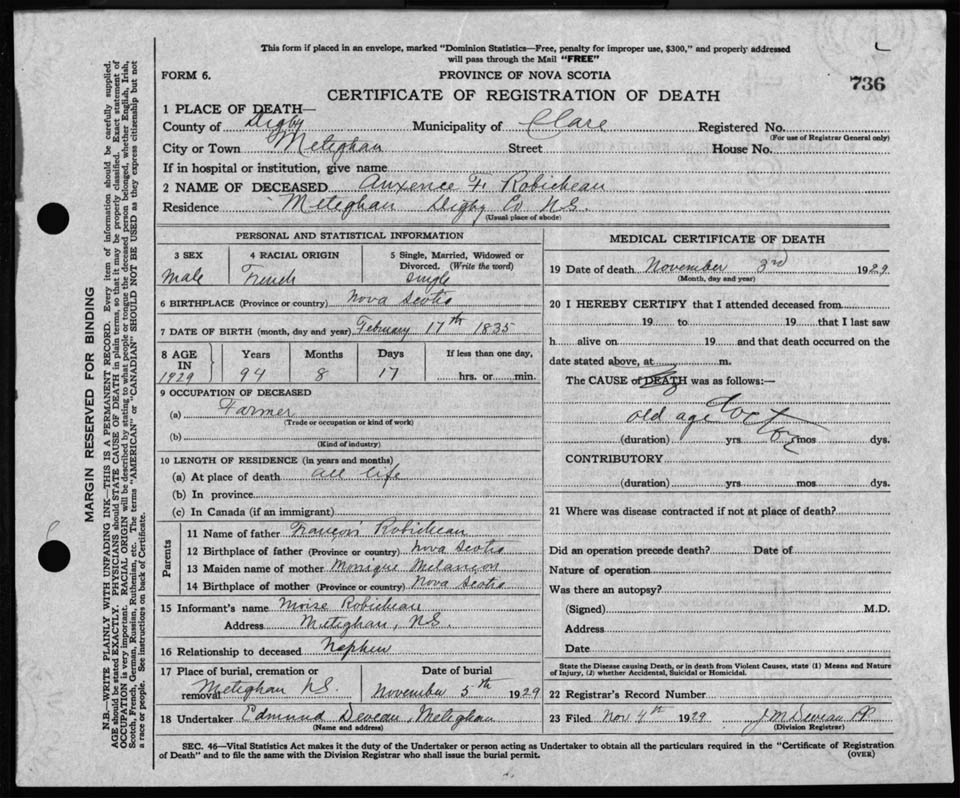 This form if placed in an envelope, marked "Dominion Statistics—Free, penalty for improper use, $300," and properly addressed
will pass through the Mail "FREE"
FORM 6.
PROVINCE OF NOVA SCOTIA
736
CERTIFICATE OF REGISTRATION OF DEATH
1 PLACE OF DEATH—
County of Digby Municipality of Clare Registered No.
(For use of Registrar General only)
City or Town Meteghan Street House No.
If in hospital or institution, give name
2 NAME OF DECEASED Auxence F. Robicheau
Residence Meteghan Digby Co N.S.
(Usual place of abode)
PERSONAL AND STATISTICAL INFORMATION
3 SEX 4 RACIAL ORIGIN 5 Single, Married, Widowed or
Divorced. (Write the word)
Male French Single
6 BIRTHPLACE (Province or country) Nova Scotia
7 DATE OF BIRTH (month, day and year) February 17th 1835
8 AGE Years Months Days If less than one day,
IN
1929 94 8 17 hrs. or min.
9 OCCUPATION OF DECEASED
(a) Farmer
(Trade or occupation or kind of work)
(b)
(Kind of industry)
10 LENGTH OF RESIDENCE (in years and months)
(a) At place of death all life
(b) In province
(c) In Canada (if an immigrant)
Parents
11 Name of father Robicheau
12 Birthplace of father (Province or country) Nova Scotia
13 Maiden name of mother Monique Melancon
14 Birthplace of mother (Province or country) Nova Scotia
15 Informant's name Moise Robicheau
Address Meteghan, N.S.
16 Relationship to deceased Nephew
17 Place of burial, cremation or Date of burial
removal Meteghan N.S. November 5th 1929
18 Undertaker Edmund Deveau, Meteghan
(Name and address)
MEDICAL CERTIFICATE OF DEATH
19 Date of death November 3rd 1929
(Month, day and year)
20 I HEREBY CERTIFY that I attended deceased from
19 to 19 that I last saw
h alive on 19 and that death occurred on the
date stated above, at m.
The CAUSE of DEATH was as follows:—
old age
(duration) yrs mos dys.
CONTRIBUTORY
(duration) yrs mos dys.
21 Where was disease contracted if not at place of death?
Did an operation precede death? Date of
Nature of operation
Was there an autopsy?
(Signed) M.D.
Address
Date
State the Disease causing Death, or in death from Violent Causes, state (1) Means and Nature
of Injury, (2) whether Accidental, Suicidal or Homicidal.
22 Registrar's Record Number
23 Filed Nov 4th 1929 J M Deveau
(Division Registrar)
SEC. 46—Vital Statistics Act makes it the duty of the Undertaker or person acting as Undertaker to obtain all the particulars required in the "Certificate of Registration
of Death" and to file the same with the Division Registrar who shall issue the burial permit. (OVER)
MARGIN RESERVED FOR BINDING
N.B.—WRITE PLAINLY WITH UNFADING INK—THIS IS A PERMANENT RECORD. Every item of information should be carefully supplied.
AGE should be stated EXACTLY. PHYSICIANS should STATE CAUSE OF DEATH in plain terms, so that it may be properly classified. Exact statement of
OCCUPATION is very important. RACIAL ORIGIN will be described by stating to what people or tongue the deceased person belonged, whether English, Irish,
Scotch, French, German, Russian, Ruthenian, etc. The terms "AMERICAN" or "CANADIAN" SHOULD NOT BE USED as they express citizenship but not
a race or people. See instructions on back of Certificate.